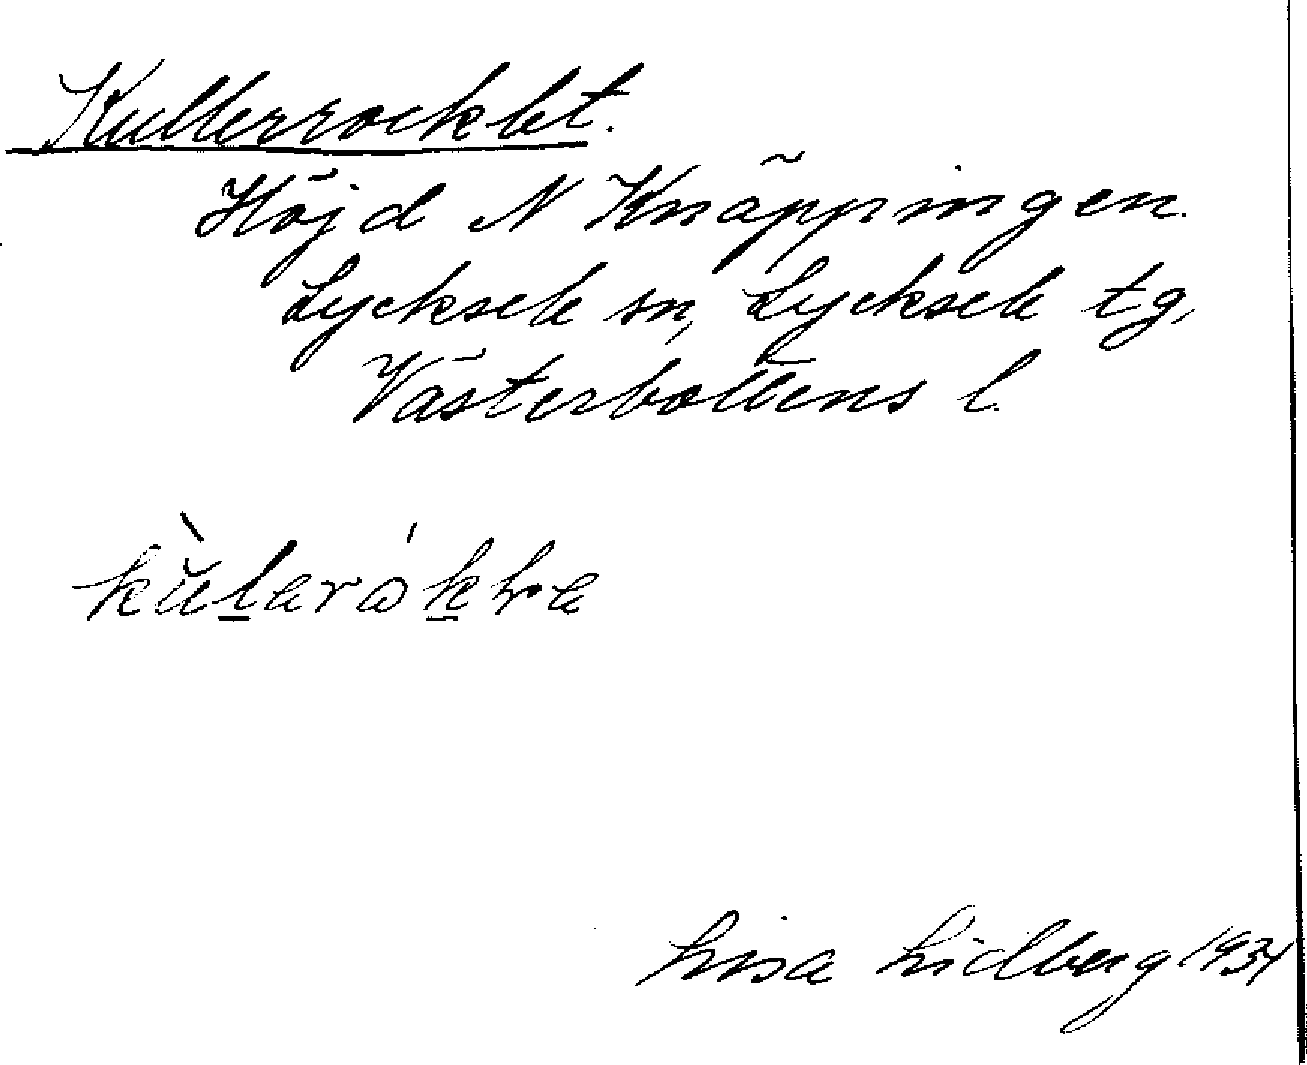 Kullerrocklet.
Höjd N Knäppingen.
Lycksele sn, Lycksele tg,
Västerbottens l.
Lisa Lidberg 1934